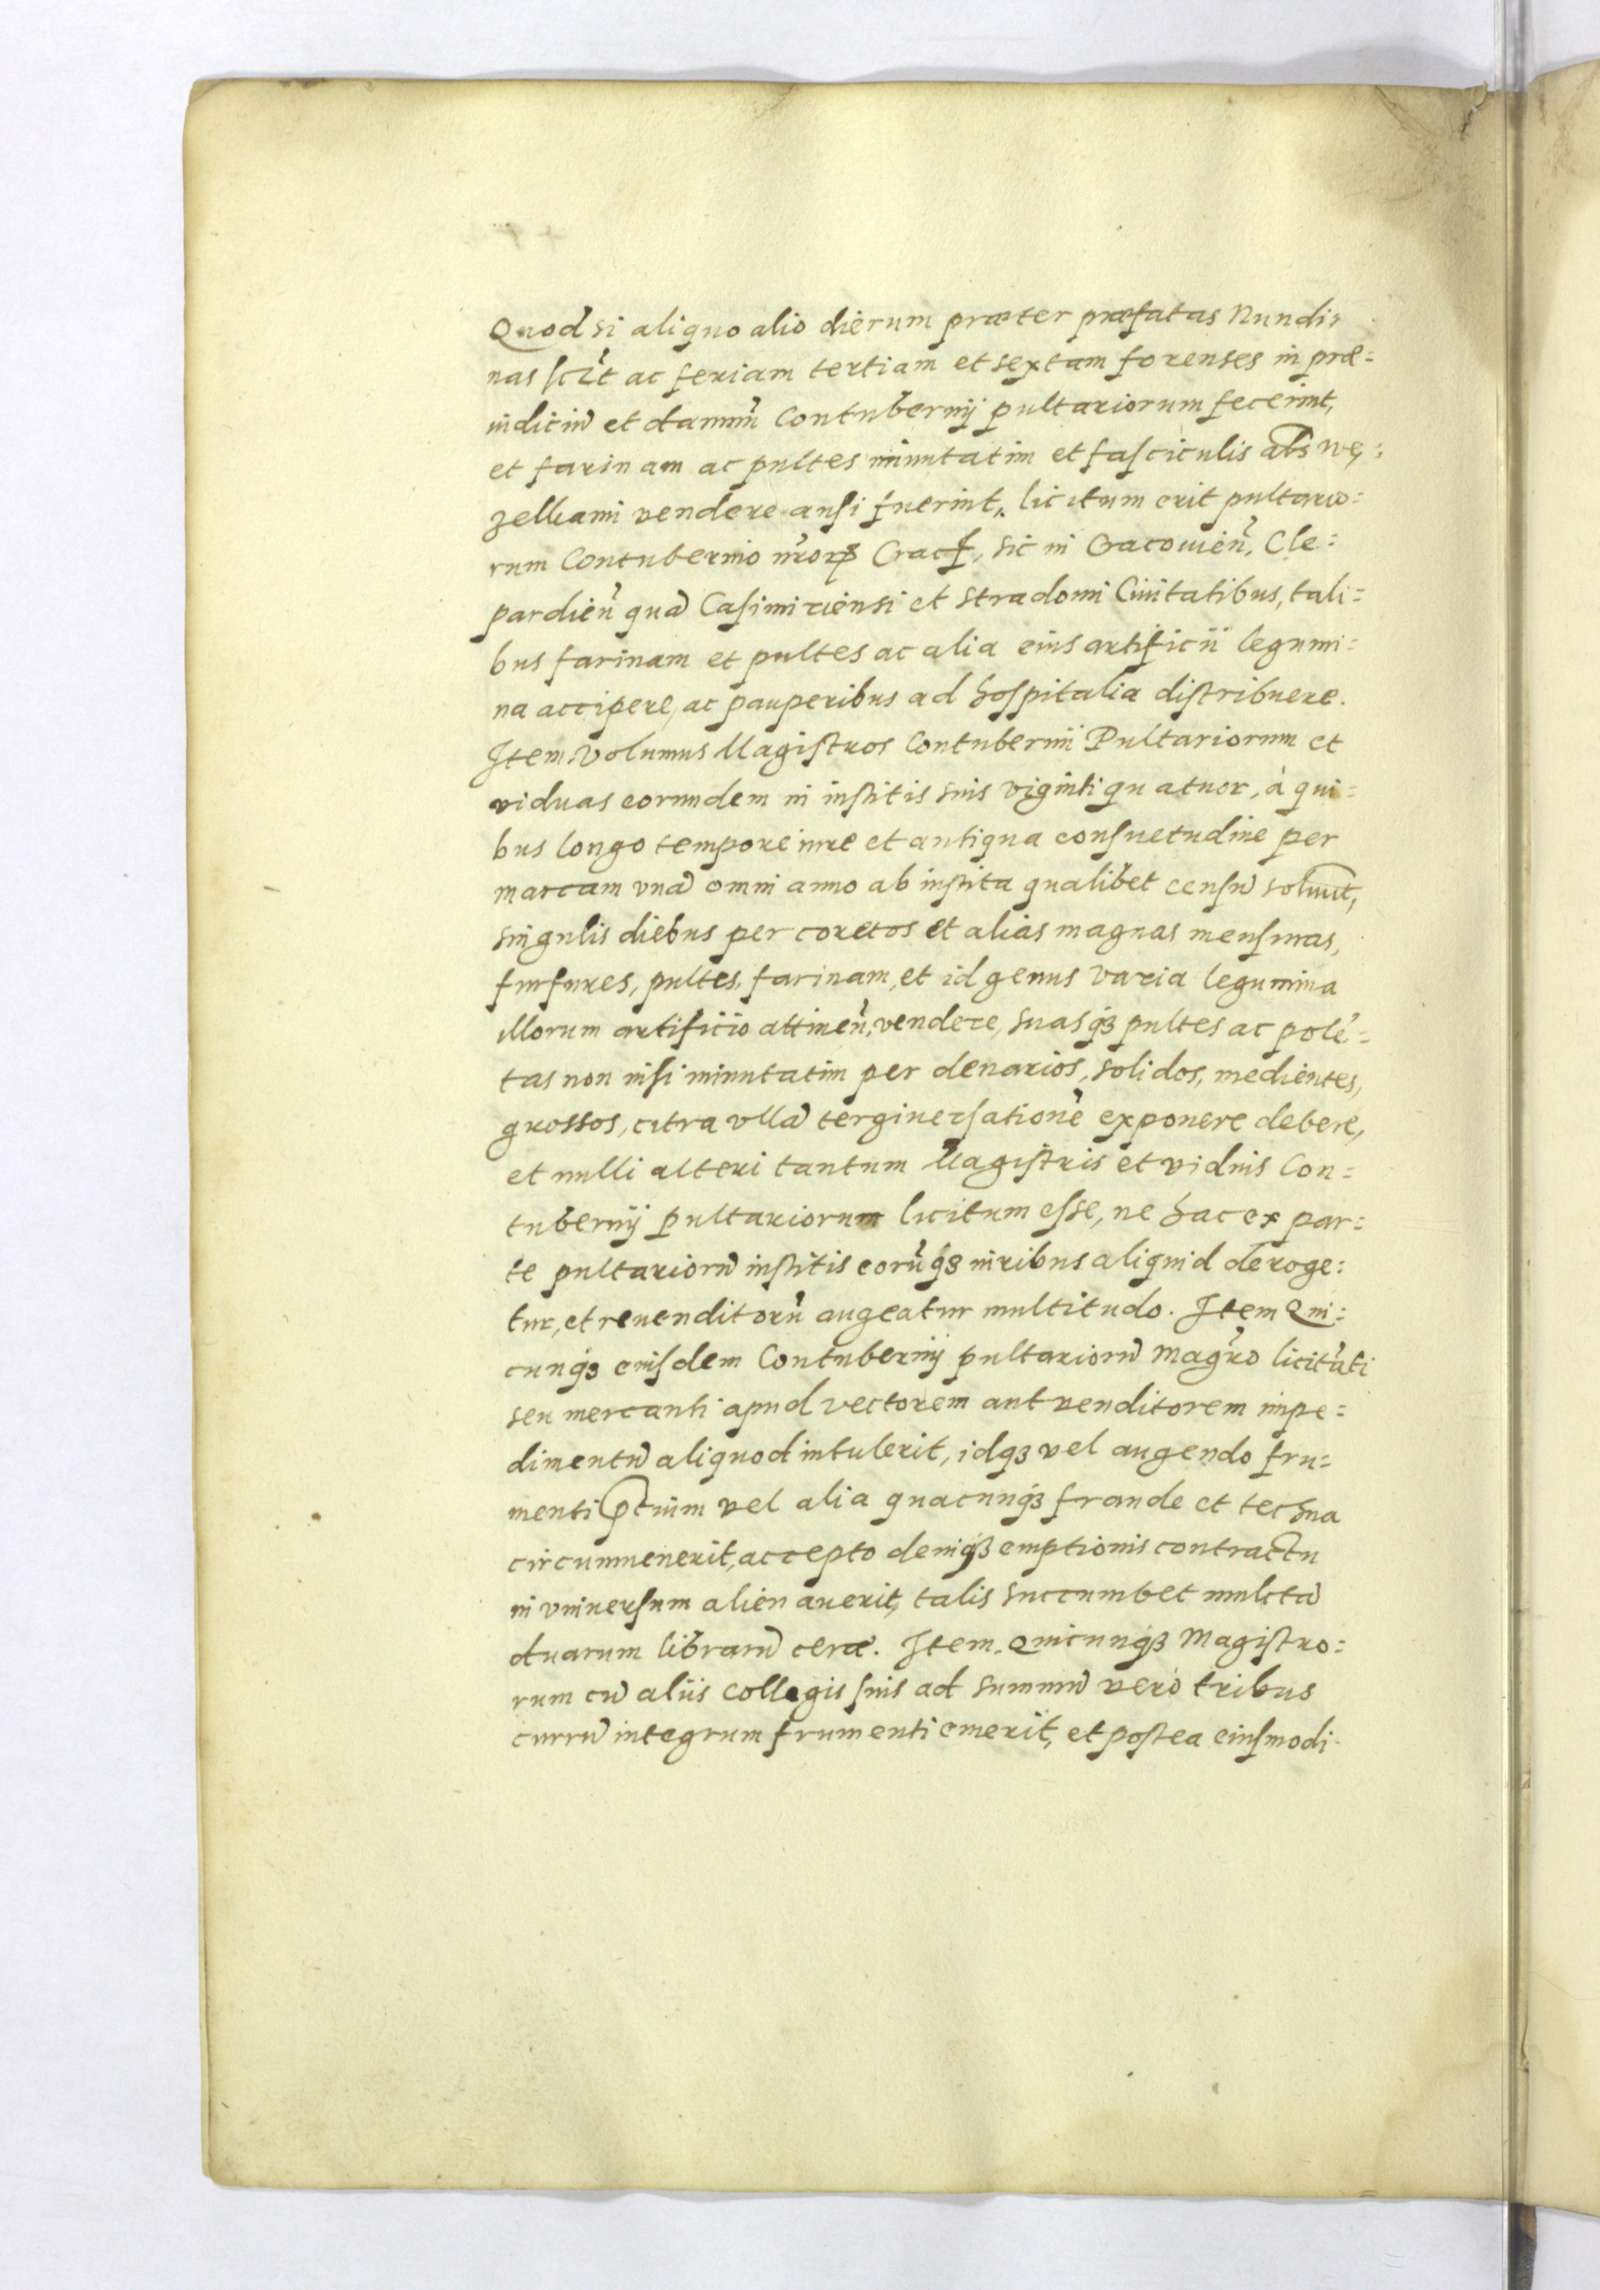 Quod si aliquo alio dierum præter præfatas Nundi-
nas sclt̃ ac feriam tertiam et sextam forenses in præ=
iudiciũ et damnũ Contubernij pultariorum fecerint,
et farinam ac pultes minutatim et fasciculis als wę=
zelkami vendere ausi fuerint, licitum erit pultario=
rum Contubernio nr̃orꝝ Crac, sic in Cracouieñ, Cle=
pardieñ quã Casimiriensi et Stradomi Ciuitatibus, tali=
bus farinam et pultes ac alia eius artificii legumi=
na accipere, ac pauperibus ad hospitalia distribuere.
Item Volumus Magistros Contubernii Pultariorum et
viduas eorundem in institis suis viginti quatuor, à qui=
bus longo tempore iure et antiqua consuetudine per
marcam vnã omni anno ab instita qualibet censũ soluũt,
singulis diebus per coretos et alias magnas mensuras,
furfures, pultes, farinam, et id genus varia legumina
illorum artificio attineñ, vendere, suasqꝫ pultes ac polẽ=
tas non nisi minutatim per denarios, solidos, medientes,
grossos, citra vllã tergiuersationẽ exponere debere,
et nulli alteri tantum Magistris et viduis Con=
tubernij pultariorum licitum esse, ne hac ex par=
te pultariorũ institis eorũqꝫ iuribus aliquid deroge=
tur, et reuenditorũ augeatur multitudo. Item Qui=
cunqꝫ eiusdem Contubernij pultariorũ Magr̃o licitãti
seu mercanti apud vectorem aut venditorem impe=
dimentũ aliquod intulerit, idqꝫ vel augendo fru=
menti p̃tium vel alia quacunqꝫ fraude et techna
circumuenerit, accepto deniqꝫ emptionis contractu
in vniuersum alienauerit, talis succumbet mulctã
duarum librarũ ceræ. Item Quicunqꝫ Magistro=
rum cũ aliis collegis suis ad summũ verò tribus
currũ integrum frumenti emerit, et postea eiusmodi